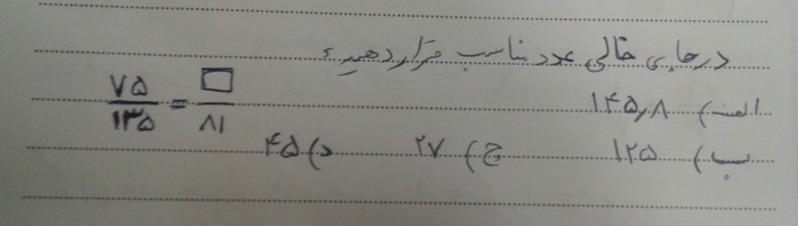 در جای خالی عدد مناسب قرار دهید؟
۷۵/۱۳۵ = □/۸۱
الف) ۱۴۵٫۸
ب) ۱۲۵ ج) ۲۷ د) ۴۵